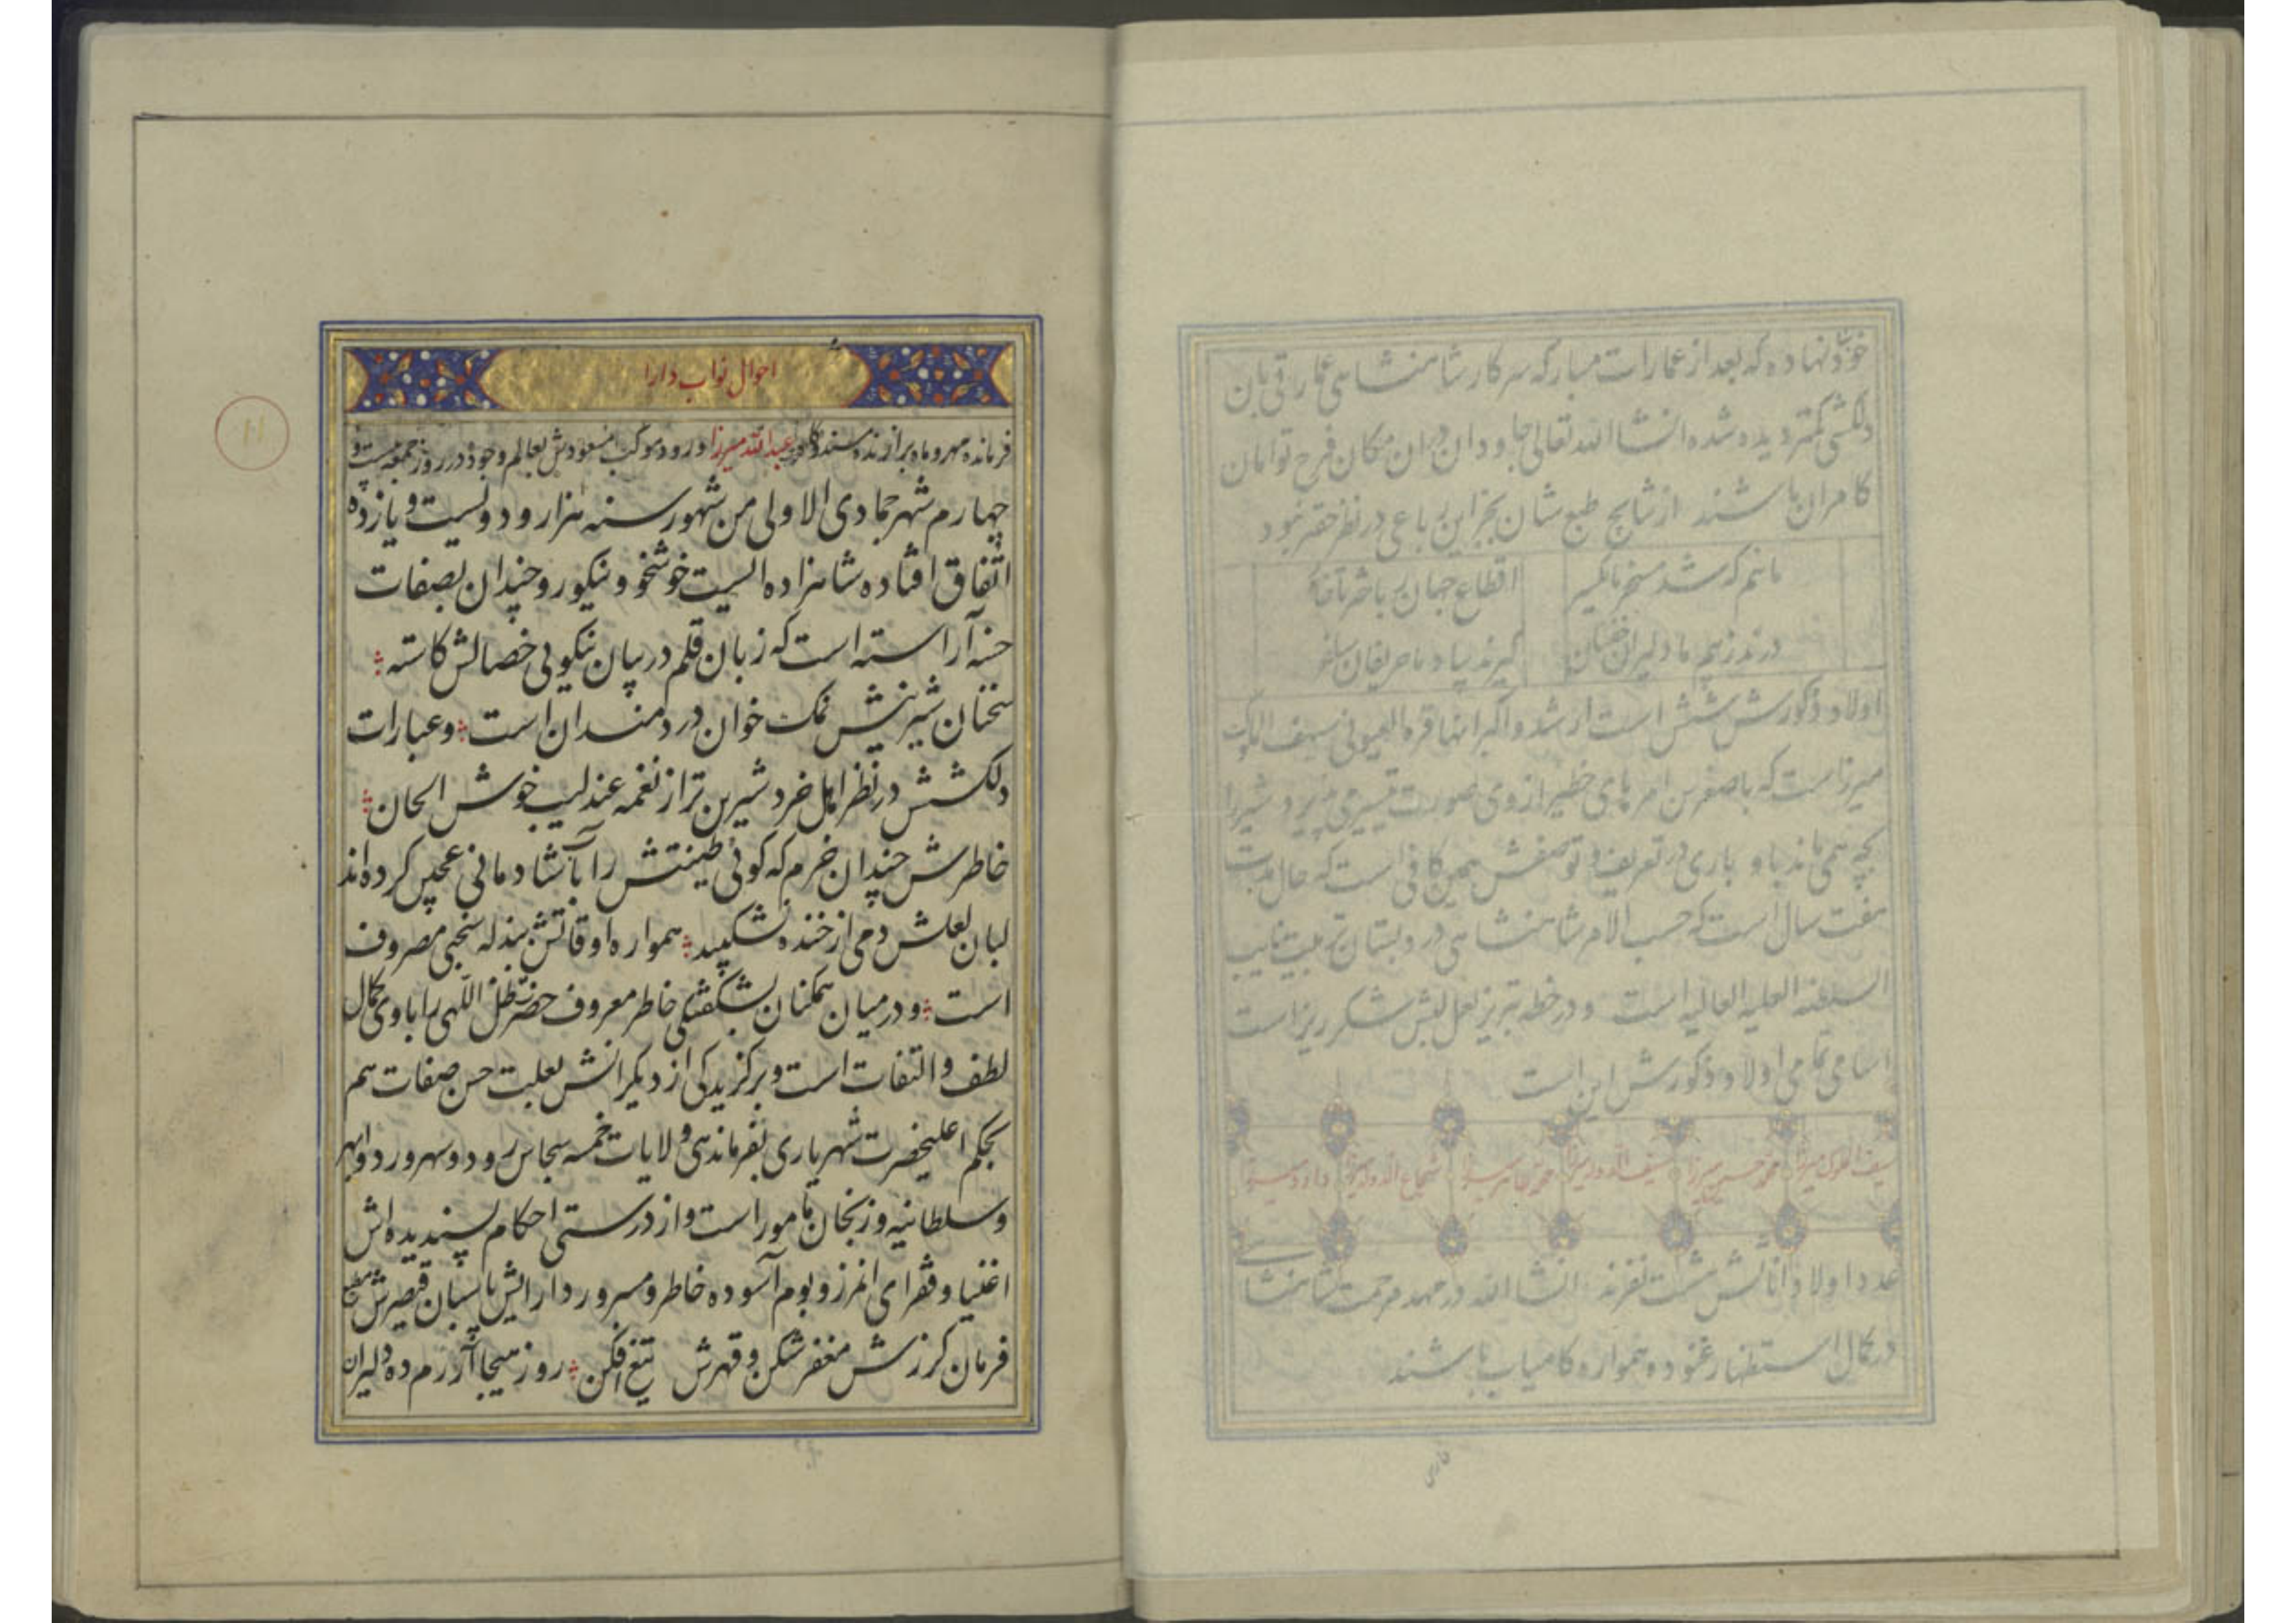 خود نهاده که بعد از عمارات مبارکه سرکار شاهنشاهی عمارتی بان
دلکشی کمتر دیده شده انشاالله تعالی جاودان دران مکان فرح توامان
کامران باشند از نتایج طبع شان بجز این رباعی در نظر حقیر نبود
مائیم که شد مسخر ما یکسر اقطاع جهان
درند ز هم ما دلیران
اولاد ذکورش شش است ارشد و اکبر انها قره العیونی سیف الملوک
میرزاست که با صغر سن امرهای خطیر از وی صورت تیسیر می پذیرد شیر را
بچه همی ماند باو باری در تعریف و توصیفش همین کافی است که حال مدت
هفت سال است که حسب الامر شاهنشاهی در دبستان تربیت نایب
السلطنه العلیه العالیه است و در خطه تبریز لعل لبش شکر ریز است
اسامی تمامی اولاد ذکورش این است
سیف الملوک میرزا محمد حسین میرزا سیف الدوله میرزا شجاع الدوله میرزا داود میرزا
عدد اولاد اناثش هشت نفرند انشا الله در مهد مرحمت شاهنشا
در کمال استظهار غنوده همواره کامیاب باشند
احوال نواب دارا
فرمانده مهر و ماه برازنده مسند و کاه عبدالله میرزا ورود موکب مسعودش بعالم وجود در روز جمعه بیست و
چهارم شهر جمادی الاولی من شهور سنه هزار و دویست و یازده
اتفاق افتاده شاهزاده ایست خوشخو و نیکورو چندان بصفات
حسنه آراسته است که زبان قلم در بیان نیکویی خصالش کاسته
سخنان شیرینش نمک خوان دردمندان است و عبارات
دلکشش در نظر اهل خرد شیرین تر از نغمه عندلیب خوش الحان
خاطرش چندان خرم که کوئی طینتش را بآب شادمانی عجین کرده اند
لبان لعلش دمی از خنده نشکیبد همواره اوقاتش ببذله سنجی مصروف
است و در میان همکنان بشکفتگی خاطر معروف حضرت ظل اللهی را با وی کمال
لطف و التفات است و برکزیدگی از دیکرانش بعلت حسن صفات هم
بحکم اعلیحضرت شهریاری بفرماندهی ولایات خمسه سجاس رود و سهرورد و ابهر
و سلطانیه و زنجان مامور است و از درستی احکام پسندیده اش
اغنیا و فقرای انمرز و بوم آسوده خاطر و مسرور دارایش پاسبان قیصرش مطیع
فرمان کرزش مغفر شکن و قهرش تیغ افکن روز هیجا آزرم ده دلیران